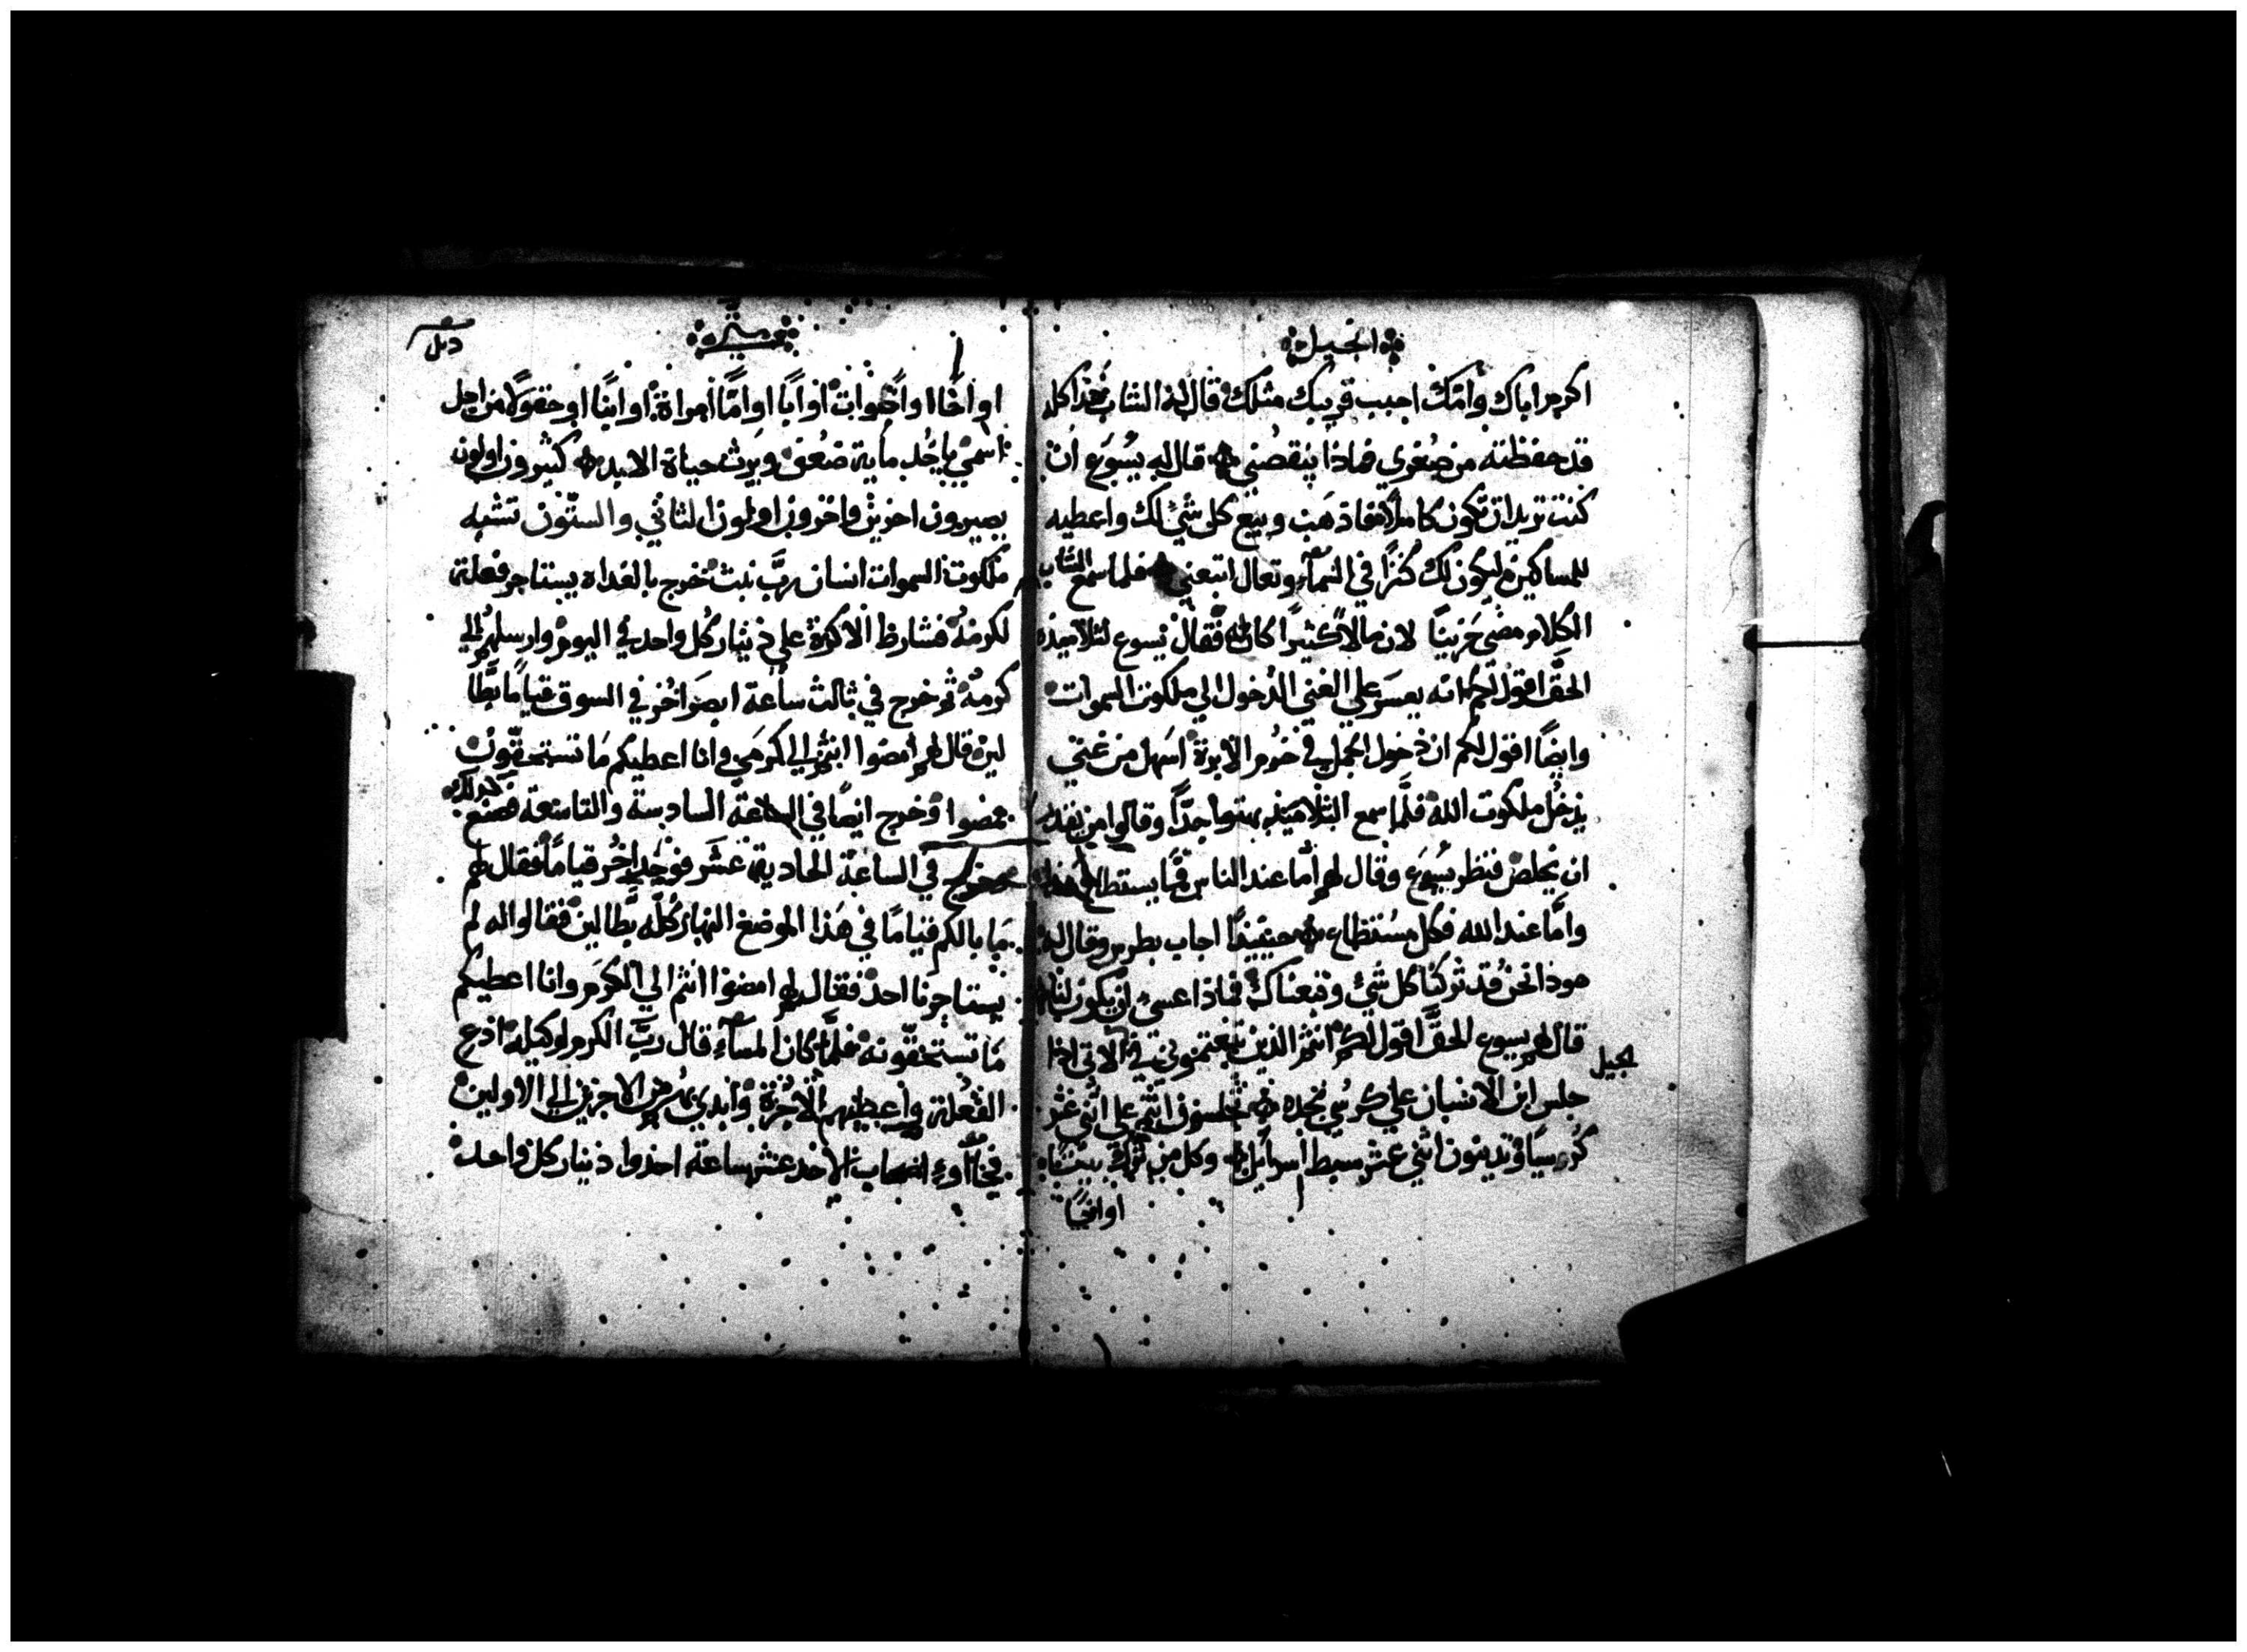 انجيل
اكرم اباك وامّك احبب قريبك مثلك قال له الشاب هذا كله
قد حفظته من صغري فماذا ينقصني قال له يسوع ان
كنت تريد ان تكون كاملًا فاذهب وبيع كل شي لك واعطيه
للمساكين ليكون لك كنزًا في السمآء وتعال اتبعني فلما سمع الشاب
الكلام مضى حزينًا لان مالًا كثيرًا كان له فقال يسوع لتلاميذه
الحقّ اقول لكم انه يعسر علي الغني الدخول الي ملكوت السموات
وايضًا اقول لكم ان دخول الجمل في خرم الابرة اسهل من غني
يدخل ملكوت الله فلمّا سمع التلاميذ بهتوا جدًّا وقالوا من يقدر
ان يخلص فنظر يسوع وقال لهم أمّا عند الناس فما يستطاع هذا
وامّا عند الله فكل مستطاع حينيذًا اجاب بطرس وقال له
هوذا نحن قد تركنا كل شي وتبعناك فماذا عسى ان يكون لنا
قال لهم يسوع الحقّ اقول لكم انتم الذين تبعتموني في الاتي اذا
جلس ابن الانسان علي كرسي مجده تجلسون انتم علي اثني عشر
كرسيًا وتدينون اثني عشر سبط اسرايل وكل من ترك بيتًا
او اخًا
نجيل
متي
او اخًا او اخوات او ابًا او امًّا امراة او ابنًا او حقولًا من اجل
اسمي ياخد ماية ضعف ويرث حياة الابد كثيرون اولون
يصيرون اخرين واخرون اولون الثاني والستون تشبه
ملكوت السموات انسان ربَّ بيت خرج بالغداه يستاجر فعلة
لكرمه فشارط الاكرة علي دينار كل واحد في اليوم وارسلهم الي
كرمه ثم خرج في ثالث ساعة ابصر اخر في السوق قيامًا بطّا
لين قال لهم امضوا انتم الي كرمي وانا اعطيكم ما تستحقون
فمضوا وخرج ايضًا في الساعة السادسة والتاسعة فصنع كذلك
وخرج في الساعة الحادية عشر فوجد اخر قيامًا فقال لهم
ما بالكم قيامًا في هذا الموضع النهار كلّه بطّالين فقالوا له لم
يستاجرنا احد فقال لهم امضوا انتم الي الكرم وانا اعطيكم
ما تستحقّونه فلمّا كان المسآء قال ربّ الكرم لوكيله ادع
الفعلة واعطيهم الاجرة وابدي من الاخرين الي الاولين
فجآاوء اصحاب الاحد عشر ساعة اخدوا دينار كل واحد